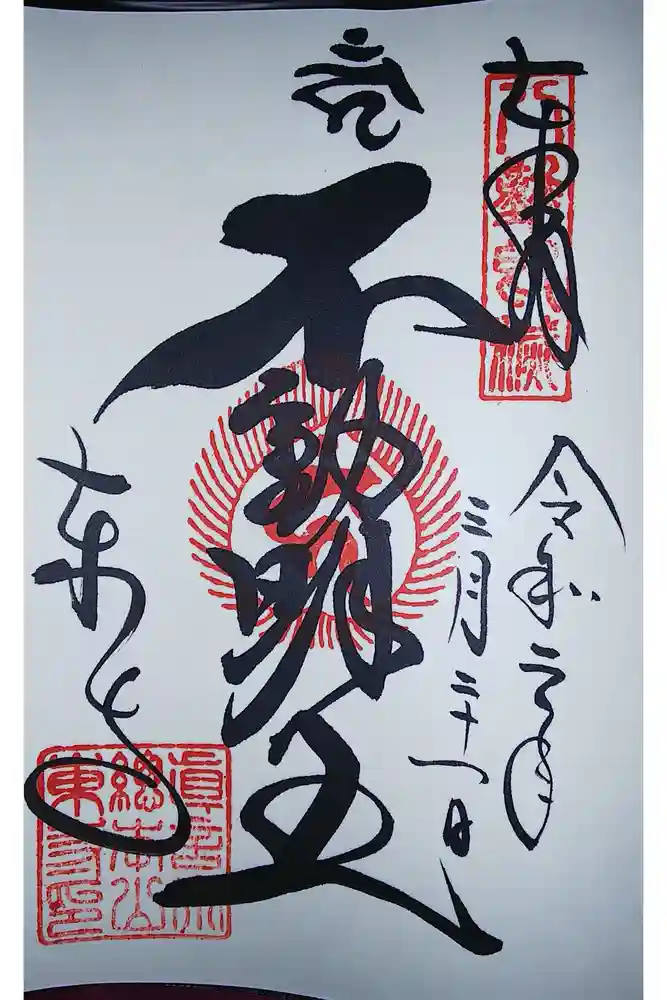 令和二年
三月二十一日
不動明王
東寺
眞言宗
總本山
東寺印